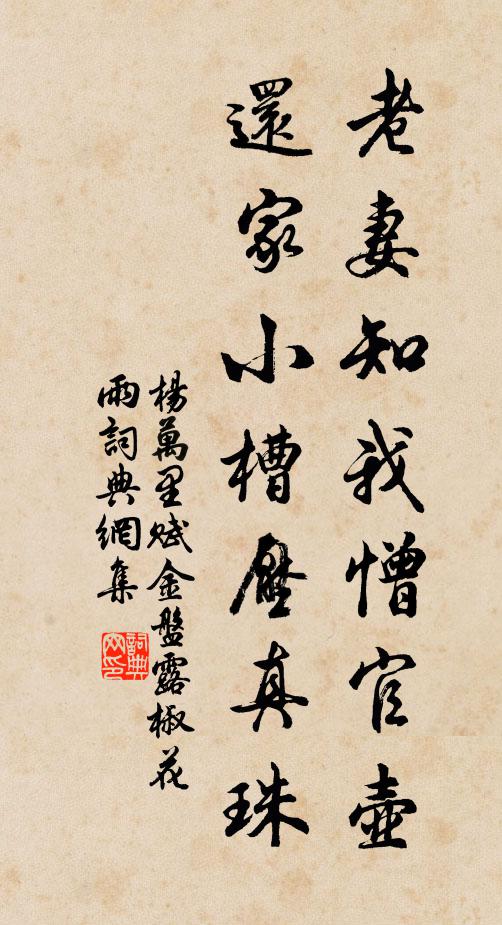 老妻知我憎官壺
還家小槽壓真珠
楊萬里賦金盤露椒花
雨詞典網集
詞典
网印